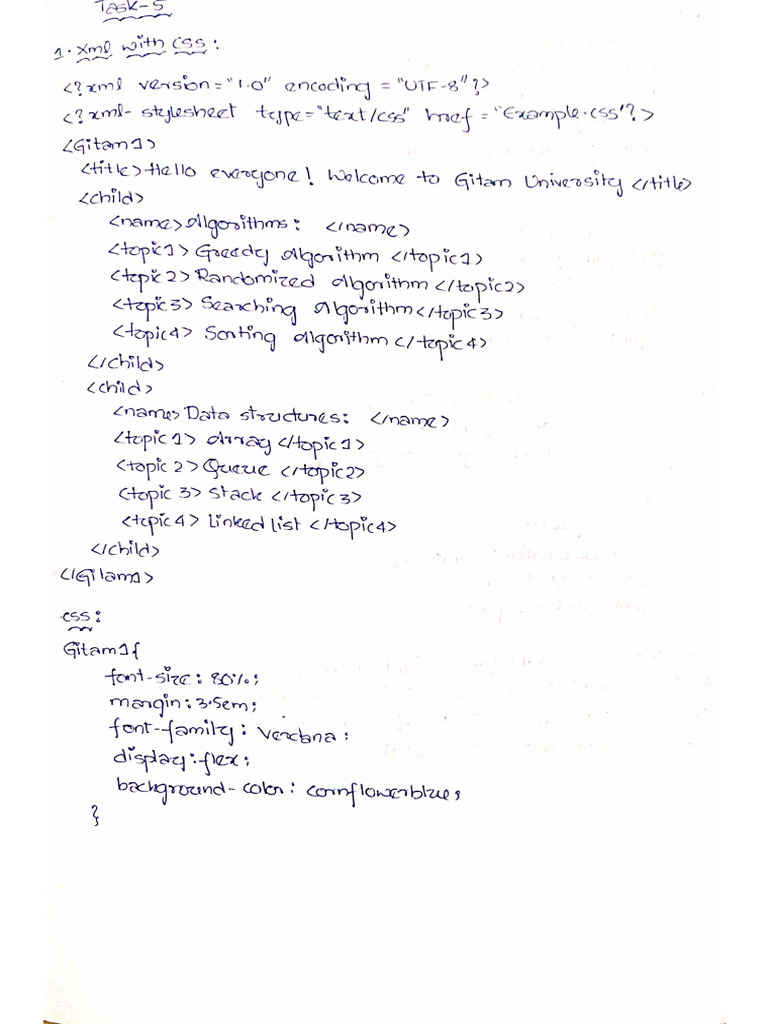 Task-5
1. Xml with CSS:
<?xml version="1.0" encoding="UTF-8"?>
<?xml-stylesheet type="text/css" href="Example.css"?>
<Gitam1>
<title>Hello everyone! Welcome to Gitam University </title>
<child>
<name>Algorithms: </name>
<topic1>Greedy algorithm </topic1>
<topic2>Randomized algorithm</topic2>
<topic3>Searching algorithm</topic3>
<topic4> Sorting algorithm</topic4>
</child>
<child>
<name>Data structures: </name>
<topic1> Array</topic1>
<topic2>Queue </topic2>
<topic3> Stack </topic3>
<topic4> Linked list </topic4>
</child>
</Gitam1>
CSS:
Gitam1{
font-size: 80%;
margin:3.5em;
font-family: Verdana;
display:flex;
background-color: cornflowerblue;
}